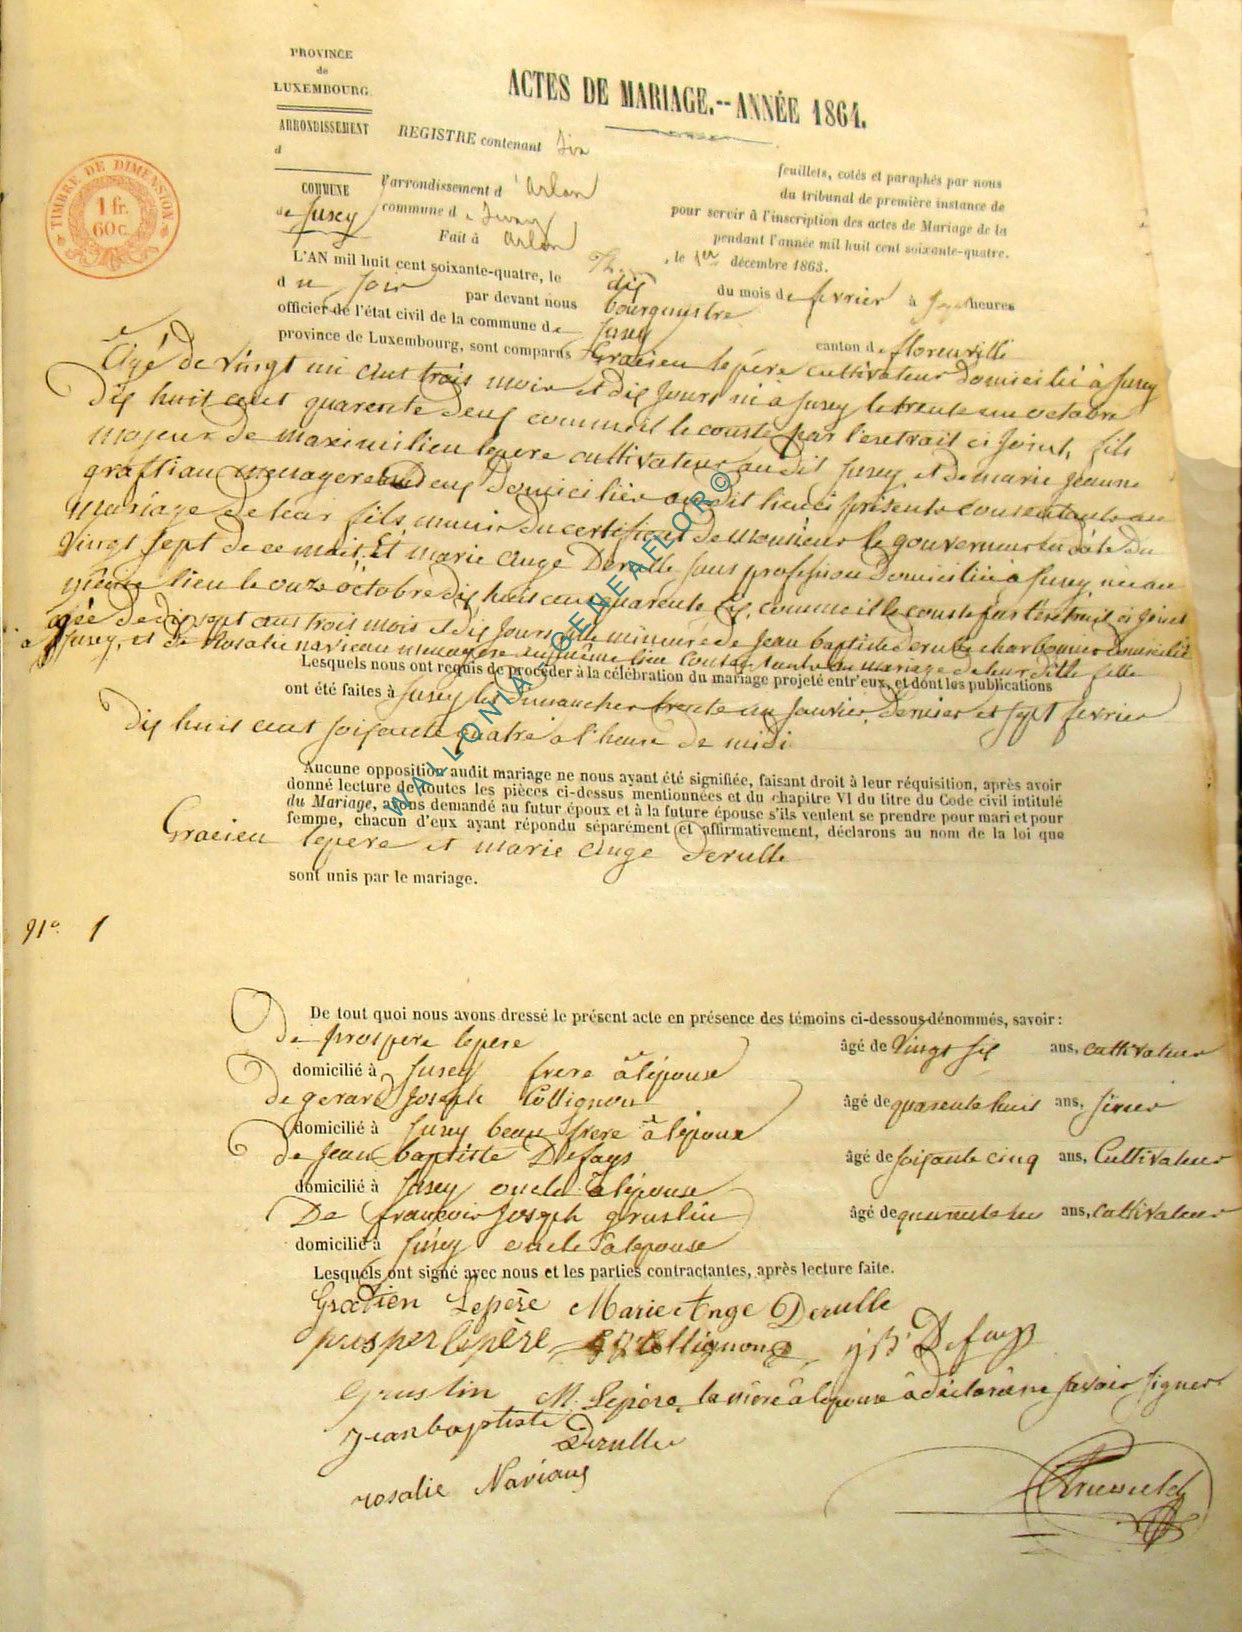 PROVINCE
de
LUXEMBOURG.
ARRONDISSEMENT
d
COMMUNE
de Jusey
TIMBRE DE DIMENSION
1 fr.
60 c.
ACTES DE MARIAGE.-- ANNÉE 1864.
REGISTRE contenant
feuillets, cotés et paraphés par nous
du tribunal de première instance de
l'arrondissement d'Arlon
pour servir à l'inscription des actes de Mariage de la
commune de
pendant l'année mil huit cent soixante-quatre.
Fait à Arlon, le 1er décembre 1863.
L'AN mil huit cent soixante-quatre, le dix du mois de février à sept heures
du soir par devant nous bourgmestre
officier de l'état civil de la commune de Jusey canton de florenville
province de Luxembourg, sont comparus Gracien lepére cultivateur domicilié à Jusey
Agé de vingt un ans trois mois et dix jours né à Jusey le trente un octobre
dix huit cent quarente deux comme il le conste par l'extrait ci joint, fils
majeur de maximilien lepere cultivateur audit Jusey et de marie jeanne
menagere deux domiciliés audit lieu ci présents consentants au
mariage de leur fils muni du certificat de Monsieur le gouverneur en date du
vingt sept de ce mois, Et marie ange Derulle sans profession domiciliée à Jusey, née au
même lieu le onze octobre dix huit cent quarente six, comme il le conste par l'extrait ci joint
agée de dix sept ans trois mois et dix jours fille mineure de Jean baptiste derulle charbonnier domicilié
à Jusey, et de Rosalie naviaux menagère au même lieu consentants au mariage de leur dite fille
Lesquels nous ont requis de procéder à la célébration du mariage projeté entr'eux, et dont les publications
ont été faites à Jusey les dimanches trente un janvier dernier et sept fevrier
dix huit cent soixante quatre à l'heure de midi
Aucune opposition audit mariage ne nous ayant été signifiée, faisant droit à leur réquisition, après avoir
donné lecture de toutes les pièces ci-dessus mentionnées et du chapitre VI du titre du Code civil intitulé
du Mariage, avons demandé au futur époux et à la future épouse s'ils veulent se prendre pour mari et pour
femme, chacun d'eux ayant répondu séparément et affirmativement, déclarons au nom de la loi que
Gracien lepere et marie ange derulle
sont unis par le mariage.
N° 1
De tout quoi nous avons dressé le présent acte en présence des témoins ci-dessous dénommés, savoir :
De prospere lepere âgé de vingt six ans, cultivateur
domicilié à Jusey frere à lépouse
De gerard Joseph Collignon âgé de quarente huit ans,
domicilié à Jusey beau frere à lépoux
De Jean baptiste Defays âgé de soixante cinq ans, Cultivateur
domicilié à Jusey oncle à lépouse
De francois Joseph gruslin âgé de ans, cultivateur
domicilié à Jusey oncle à lepouse
Lesquels ont signé avec nous et les parties contractantes, après lecture faite.
Gratien Lepère Marie Ange Derulle
prosper lepère Collignon j B Defays
Gruslin M. Lepère, la mère à lepoux à déclaré ne savoir signer
jean baptiste
Derulle
rosalie Naviaux
WALLONIA-GENEAFLOR ©